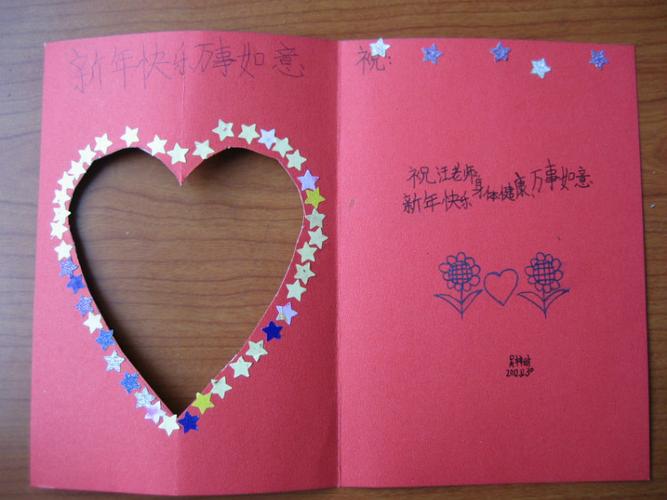 新年快乐万事如意
祝:
祝汪老师身体健康,万事如意
新年快乐